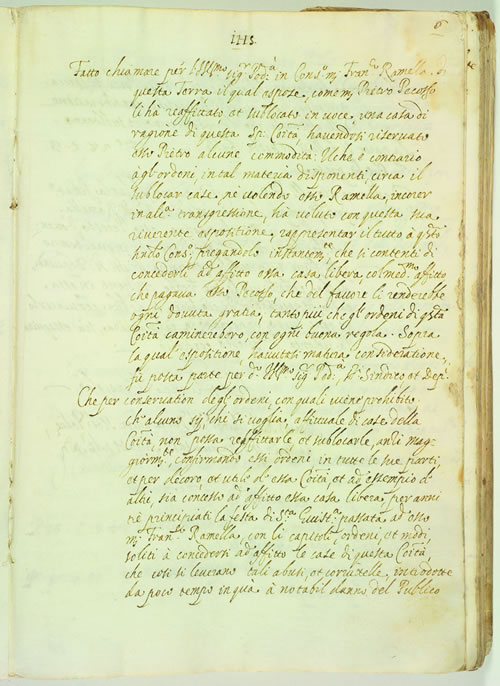 IIIS.
6
Fatto chiamare per l'Ill.mo Sig.r Pod.à in Cons.o m. Fran.o Ramella di
questa Terra il qual espose, come m. Pietro Pecosso
li hà reaffittato et sublocato in voce, una casa di
ragione di questa Sp. Co.ità, havendosi riservato
esso Pietro alcune commodità: Il che è contrario
à gl'ordeni, in tal materia disponenti, circa il
sublocar case, nè volendo esso Ramella, incorer
in al.a transgressione, hà voluto con questa sua
riverente espositione, rappresentar il tutto à q.sto
Cons.o pregandolo instantem.te, che si contenti di
concederli ad affitto essa casa libera, col med.mo affitto
che pagava esso Pecosso, che del favore li renderebbe
ogni dovuta gratia, tanto più che gl'ordeni di q.sta
Co.ità caminerebero, con ogni buona regola. Sopra
la qual espositione havutasi matura consideratione,
fù posta parte per d.o Ill.mo Sig.r Pod.à, Sindico et Dep.i
Che per conservation degl'ordeni, con quali viene prohibito
ch'alcuno sij, chi si voglia, affittuale di case della
Co.ità non possa reaffittarle, et sublocarle, anzi mag-
giorm.te confirmando essi ordeni in tutte le sue parti
et per decoro, et utile d'essa Co.ità, et ad essempio d'
altri, sia concesso ad affitto essa casa libera, per anni
trè principiati la festa di S.ta Giusti.a passata ad esso
m. Fran.o Ramella, con li capitoli, ordeni, et modi,
soliti à concedersi ad affitto le case di questa Co.ità,
che così si leverano tali abusi, et corruttelle, introdotte
da poco tempo in quà à notabil danno del Publico